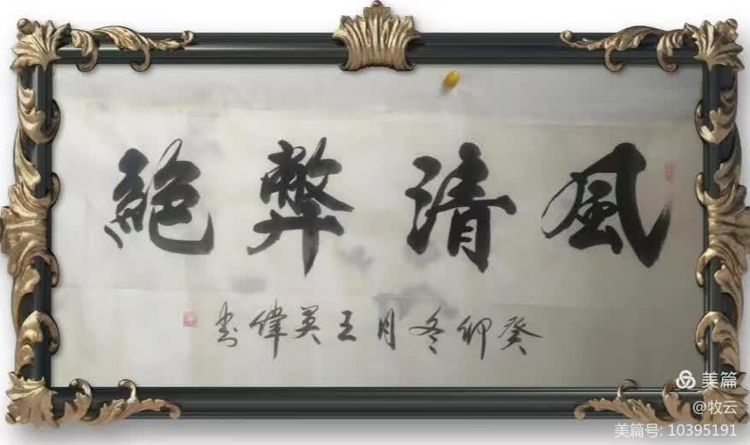 風清弊絕
癸卯冬月王英偉書
美篇
@牧云
美篇号: 10395191